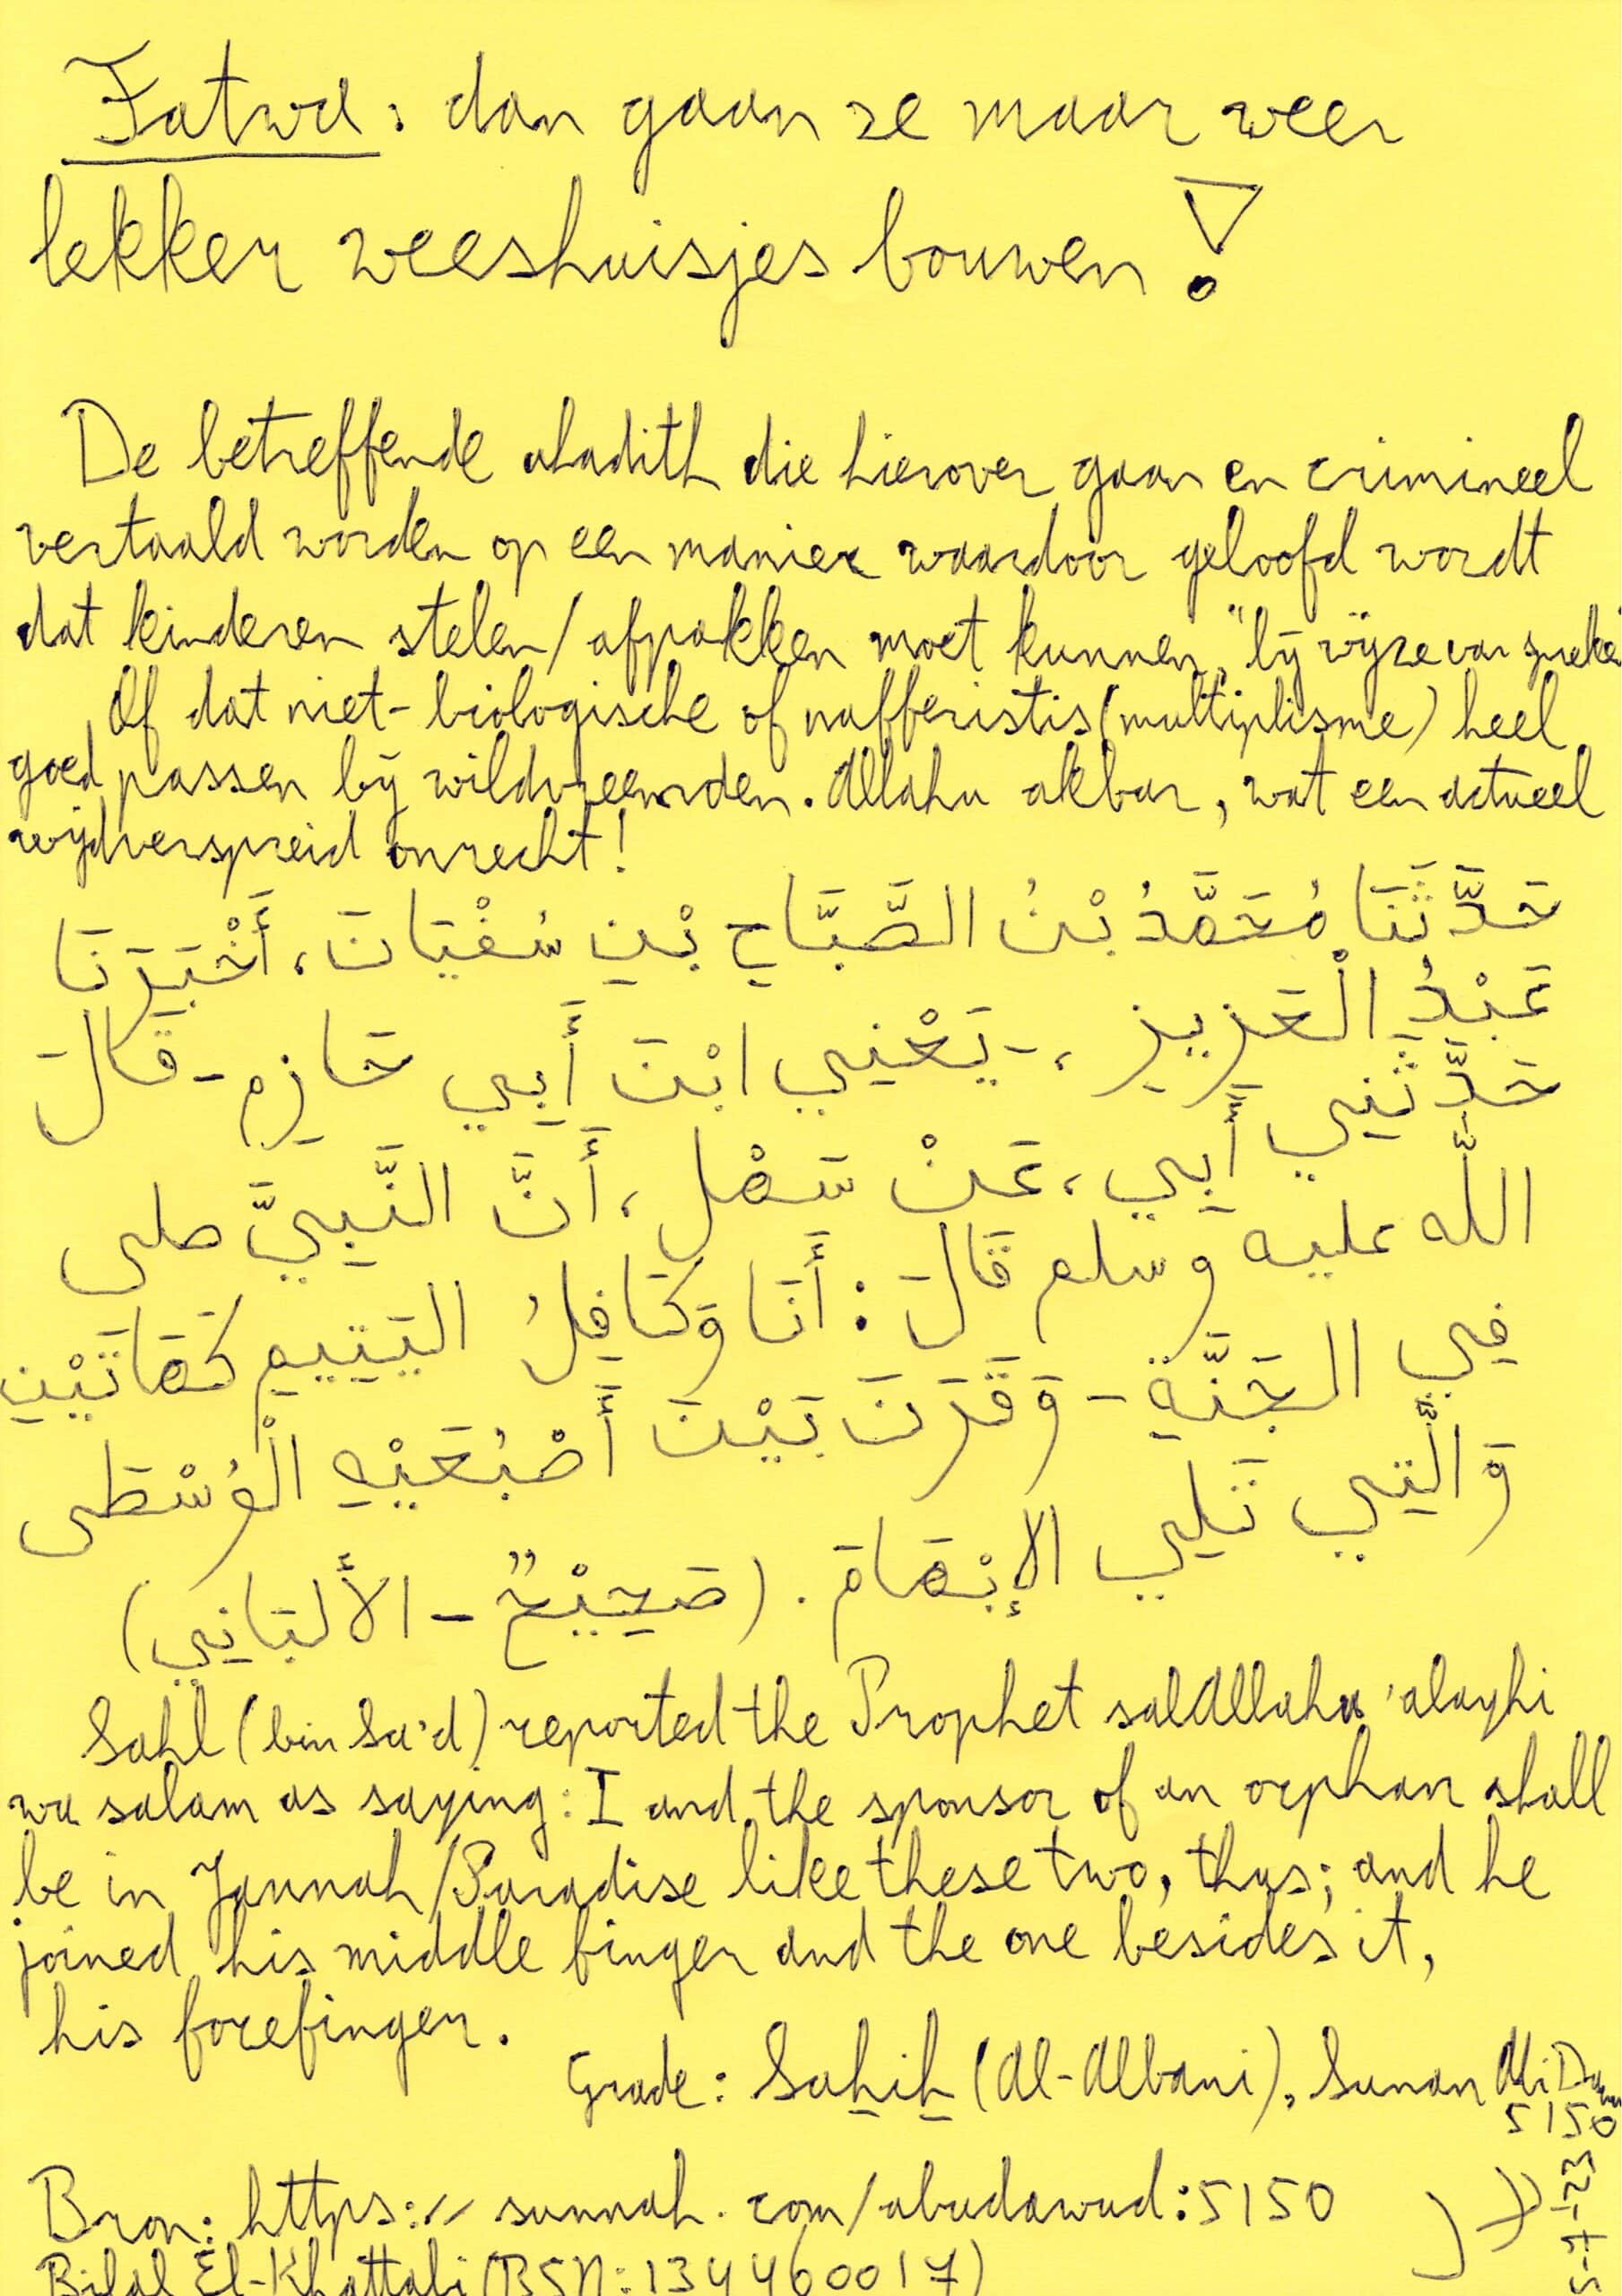 Fatwa: dan gaan ze maar weer
lekker weeshuisjes bouwen!
De betreffende ahadith die hierover gaan en crimineel
vertaald worden op een manier waardoor geloofd wordt
dat kinderen stelen/afpakken moet kunnen, "bij wijze van spreken"
Of dat niet-biologische of nafferistis (multiplisme) heel
goed passen bij wildvreemden. Allahu akbar, wat een actueel
wijdverspreid onrecht!
حَدَّثَنَا مُحَمَّدُ بْنُ الصَّبَّاحِ بْنِ سُفْيَانَ، أَخْبَرَنَا
عَبْدُ الْعَزِيزِ، - يَعْنِي ابْنَ أَبِي حَازِمٍ - قَالَ
حَدَّثَنِي أَبِي، عَنْ سَهْلٍ، أَنَّ النَّبِيَّ صلى
اللَّه عليه وسلم قَالَ: أَنَا وَكَافِلُ الْيَتِيمِ كَهَاتَيْنِ
فِي الْجَنَّةِ - وَقَرَنَ بَيْنَ أَصْبُعَيْهِ الْوُسْطَى
وَالَّتِي تَلِي الإِبْهَامَ. (صَحِيْحٌ - الألبَانِي)
Sahl (bin Sa'd) reported the Prophet salAllahu 'alayhi
wa salam as saying: I and the sponsor of an orphan shall
be in Jannah/Paradise like these two, thus; and he
joined his middle finger and the one besides it,
his forefinger.
Grade: Sahih (Al-Albani), Sunan Abi Dawud
5150
Bron: https:// sunnah.com/abudawud:5150
5-7-23
Bilal El-Khattabi (BSN: 134460017)